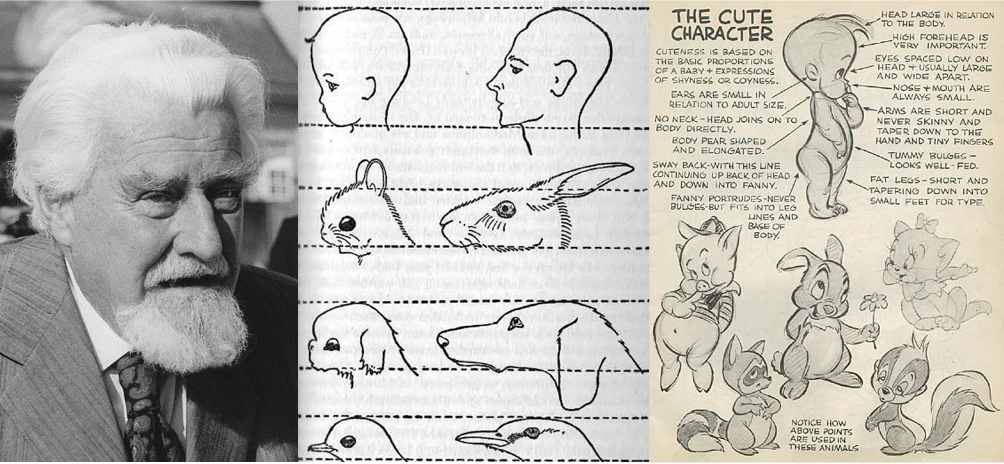 THE CUTE
CHARACTER
CUTENESS IS BASED ON
THE BASIC PROPORTIONS
OF A BABY + EXPRESSIONS
OF SHYNESS OR COYNESS.
EARS ARE SMALL IN
RELATION TO ADULT SIZE.
NO NECK-HEAD JOINS ON TO
BODY DIRECTLY.
BODY PEAR SHAPED
AND ELONGATED.
SWAY BACK-WITH THIS LINE
CONTINUING UP BACK OF HEAD
AND DOWN INTO FANNY.
FANNY PORTRUDES-NEVER
BULGES-BUT FITS INTO LEG
LINES AND
BASE OF
BODY.
HEAD LARGE IN RELATION
TO THE BODY.
HIGH FOREHEAD IS
VERY IMPORTANT.
EYES SPACED LOW ON
HEAD + USUALLY LARGE
AND WIDE APART.
NOSE + MOUTH ARE
ALWAYS SMALL.
ARMS ARE SHORT AND
NEVER SKINNY AND
TAPER DOWN TO THE
HAND AND TINY FINGERS
TUMMY BULGES-
LOOKS WELL-FED.
FAT LEGS-SHORT AND
TAPERING DOWN INTO
SMALL FEET FOR TYPE.
NOTICE HOW
ABOVE POINTS
ARE USED IN
THESE ANIMALS